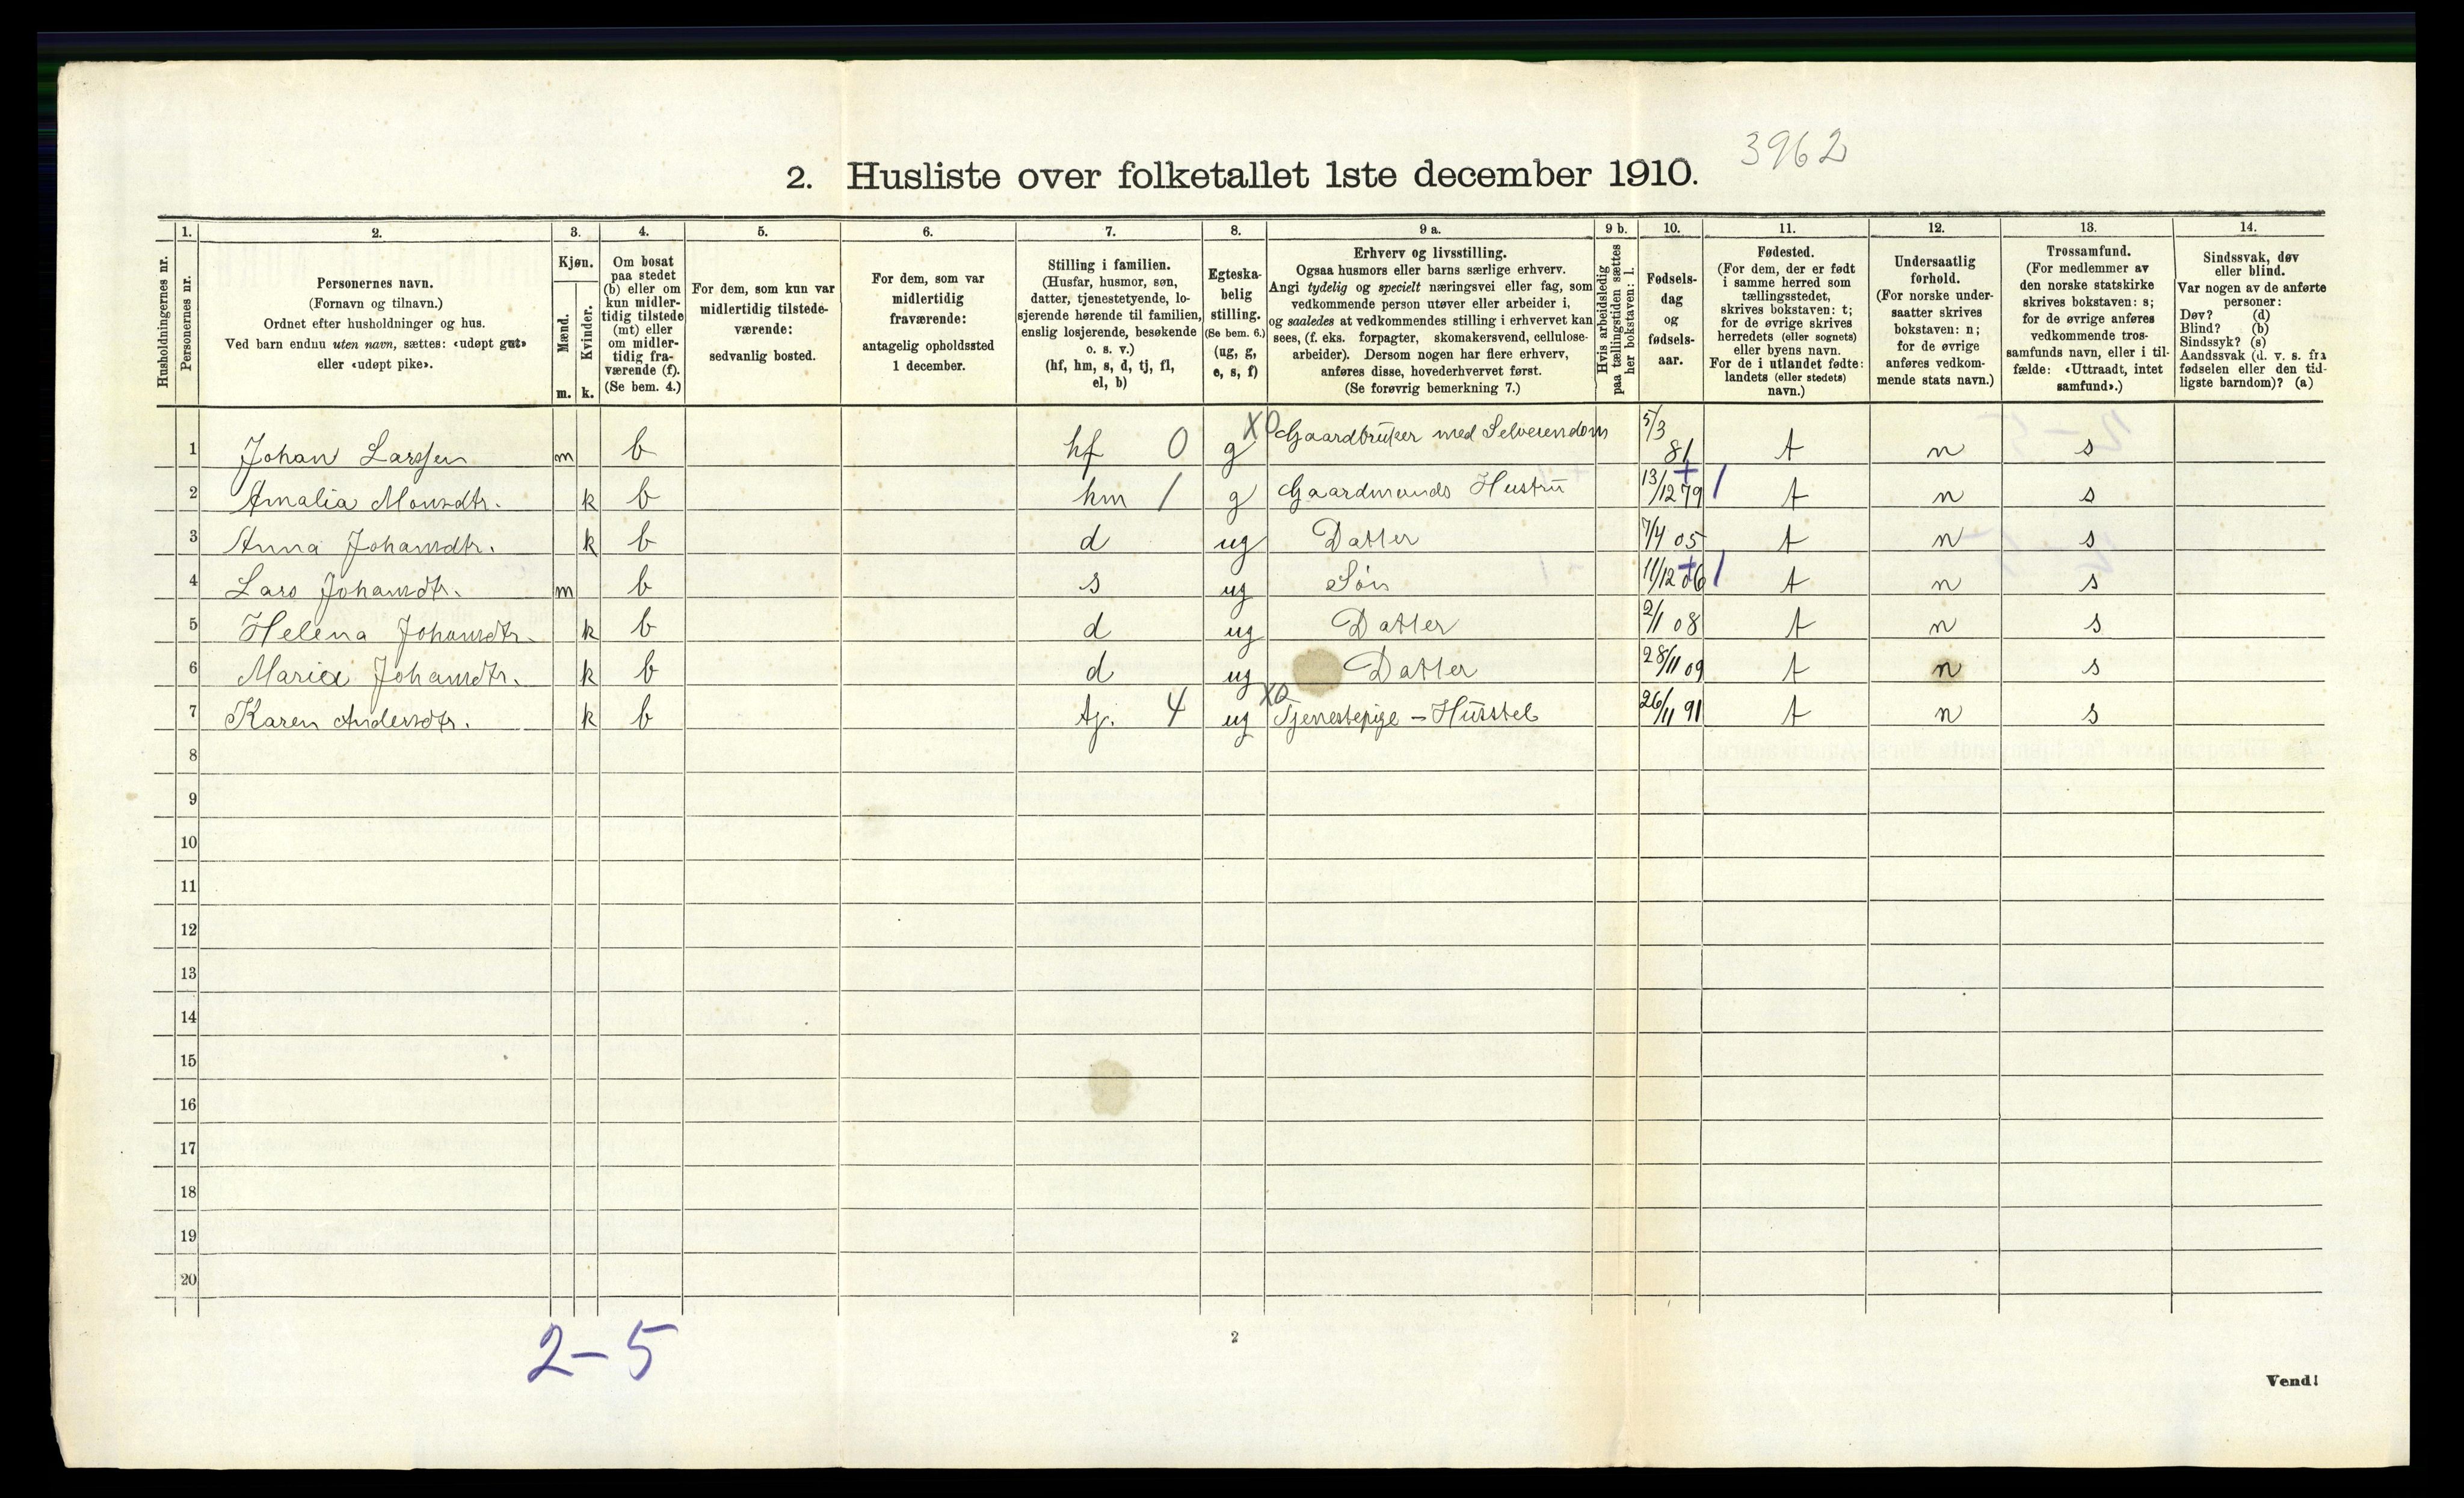 3962
2. Husliste over folketallet 1ste december 1910.
Husholdningernes nr.
1.
Personernes nr.
2.
Personernes navn.
(Fornavn og tilnavn.)
Ordnet efter husholdninger og hus.
Ved barn endnu uten navn, sættes: «udøpt gut»
eller «udøpt pike».
3.
Kjøn.
Mænd.
Kvinder.
m. k.
4.
Om bosat
paa stedet
(b) eller om
kun midler-
tidig tilstede
(mt) eller
om midler-
tidig fra-
værende (f).
(Se bem. 4.)
5.
For dem, som kun var
midlertidig tilstede-
værende:
sedvanlig bosted.
6.
For dem, som var
midlertidig
fraværende:
antagelig opholdssted
1 december.
7.
Stilling i familien.
(Husfar, husmor, søn,
datter, tjenestetyende, lo-
sjerende hørende til familien,
enslig losjerende, besøkende
o. s. v.)
(hf, hm, s, d, tj, fl,
el, b)
8.
Egteska-
belig
stilling.
(Se bem. 6.)
(ug, g,
e, s, f)
9 a.
Erhverv og livsstilling.
Ogsaa husmors eller barns særlige erhverv.
Angi tydelig og specielt næringsvei eller fag, som
vedkommende person utøver eller arbeider i,
og saaledes at vedkommendes stilling i erhvervet kan
sees, (f. eks. forpagter, skomakersvend, cellulose-
arbeider). Dersom nogen har flere erhverv,
anføres disse, hovederhvervet først.
(Se forøvrig bemerkning 7.)
9 b.
Hvis arbeidsledig
paa tællingstiden sættes
her bokstaven: l.
10.
Fødsels-
dag
og
fødsels-
aar.
11.
Fødested.
(For dem, der er født
i samme herred som
tællingsstedet,
skrives bokstaven: t;
for de øvrige skrives
herredets (eller sognets)
eller byens navn.
For de i utlandet fødte:
landets (eller stedets)
navn.)
12.
Undersaatlig
forhold.
(For norske under-
saatter skrives
bokstaven: n;
for de øvrige
anføres vedkom-
mende stats navn.)
13.
Trossamfund.
(For medlemmer av
den norske statskirke
skrives bokstaven: s;
for de øvrige anføres
vedkommende tros-
samfunds navn, eller i til-
fælde: «Uttraadt, intet
samfund».)
14.
Sindssvak, døv
eller blind.
Var nogen av de anførte
personer:
Døv? (d)
Blind? (b)
Sindssyk? (s)
Aandssvak (d. v. s. fra
fødselen eller den tid-
ligste barndom)? (a)
1 Johan Larssen m b hf 0 g X0 Gaardbruker med Selveiendom 5/3 81 t n s
2 Amalia Monsdtr. k b hm 1 g Gaardmands Hustru 13/12 79 + 1 t n s
3 Anna Johansdtr. k b d ug Datter 7/4 05 t n s
4 Lars Johansdtr. m b s ug Søn 11/12 06 + 1 t n s
5 Helena Johansdtr. k b d ug Datter 2/1 08 t n s
6 Maria Johansdtr. k b d ug Datter 28/11 09 t n s
7 Karen Andersdtr. k b tj. 4 ug X0 Tjenestepige - Husstel 26/11 91 t n s
8
9
10
11
12
13
14
15
16
17
18
19
20
2-5
2
Vend!